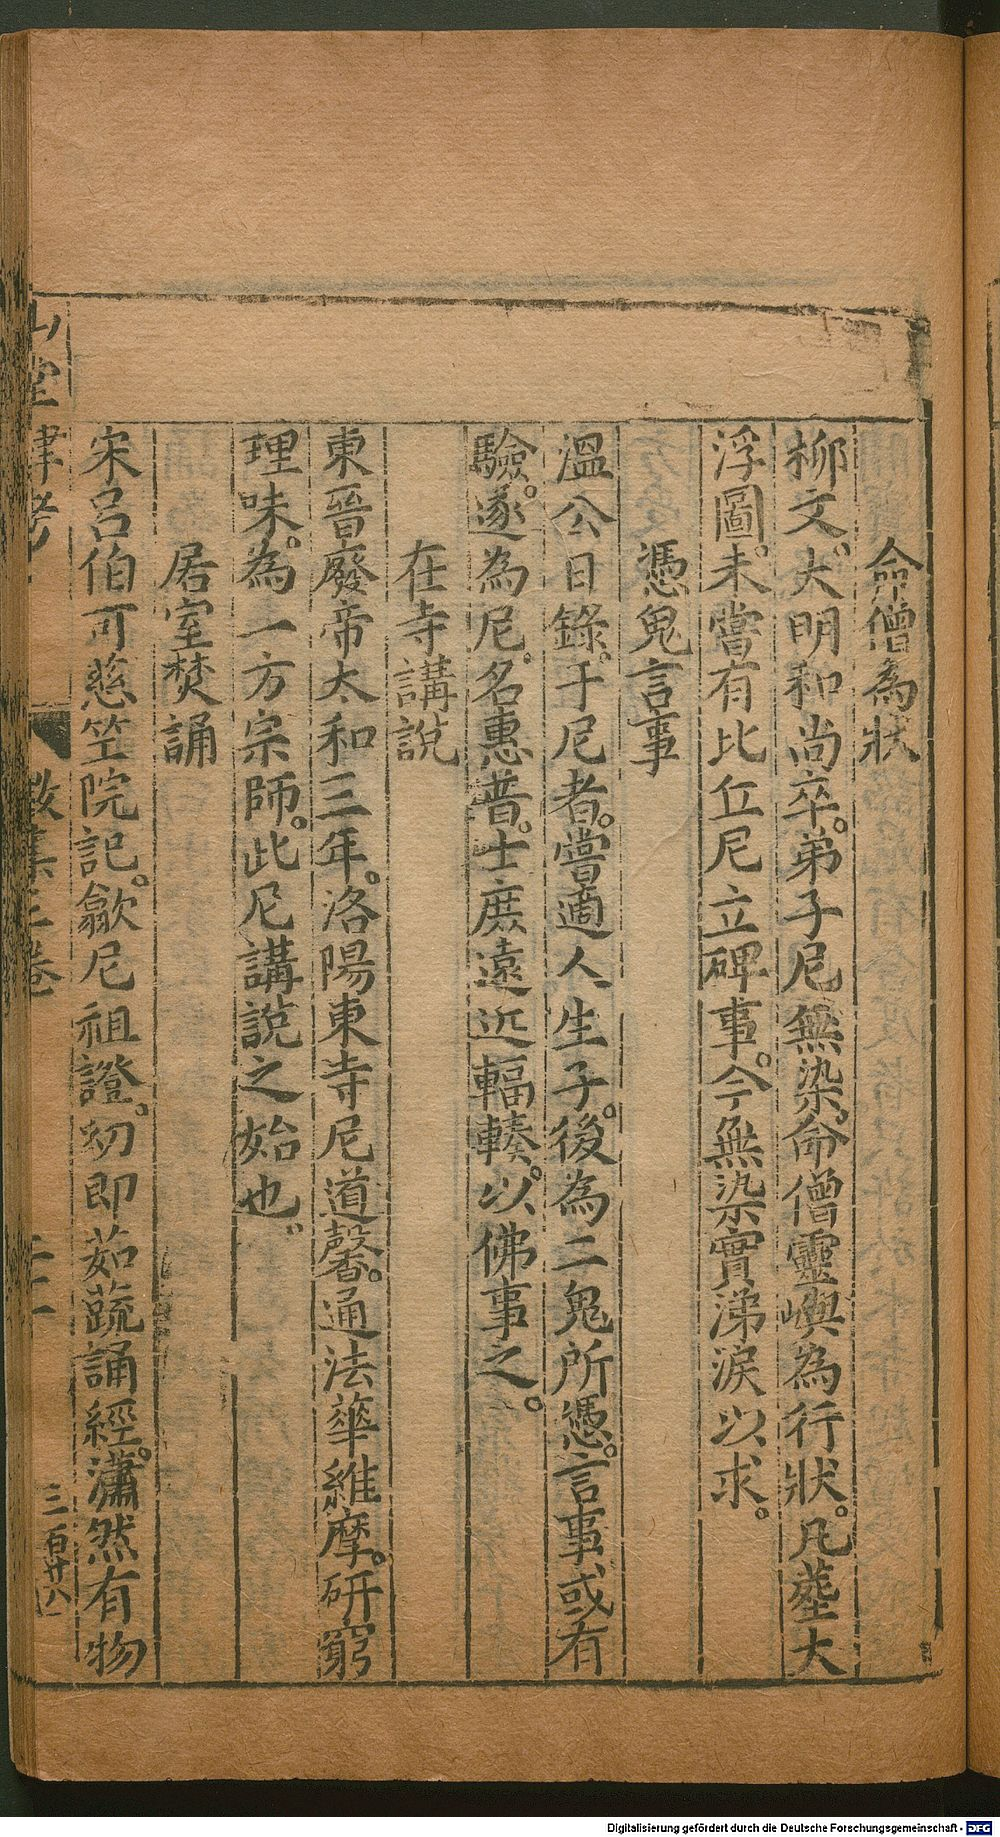 命僧為狀
柳文。大明和尚卒。弟子尼無染。命僧靈嶼為行狀。凡塟大
浮圖。未嘗有比丘尼立碑事。今無染實涕淚以求。
憑鬼言事
溫公日錄。于尼者。嘗適人生子。後為二鬼所憑。言事或有
驗。遂為尼。名惠普。士庶遠近輻輳。以佛事之。
在寺講說
東晉廢帝太和三年。洛陽東寺尼道馨。通法華維摩。研窮
理味。為一方宗師。此尼講說之始也。
居室焚誦
宋呂伯可慈笠院記。歙尼祖證。初即茹蔬誦經。瀟然有物
山堂肆考 徵集三卷 三百廿八
Digitalisierung gefördert durch die Deutsche Forschungsgemeinschaft - DFG